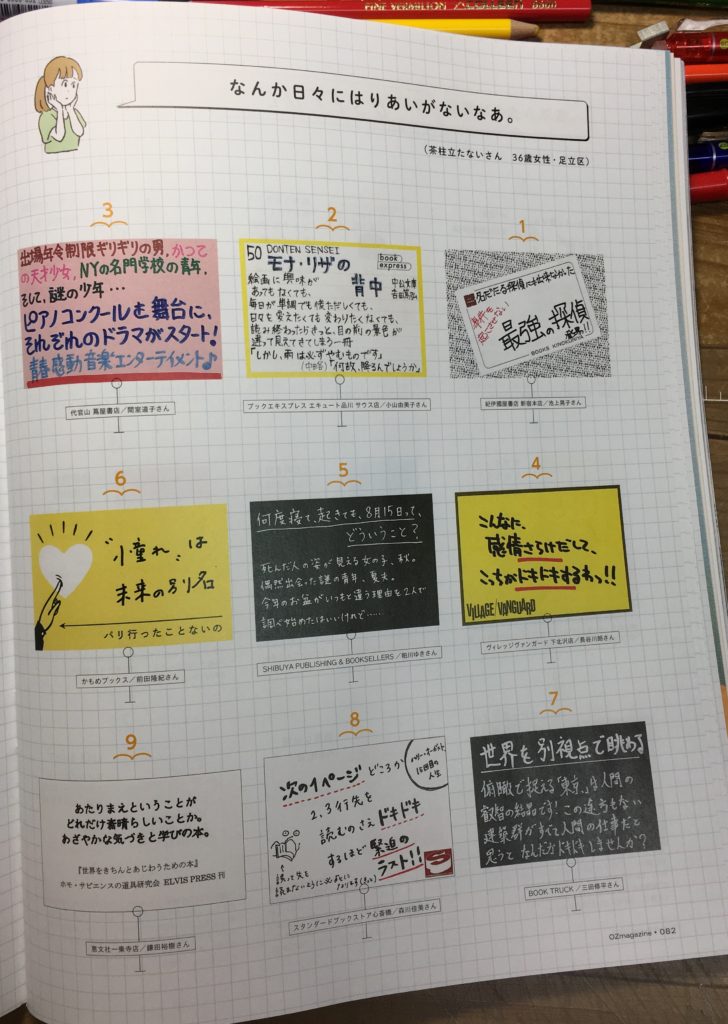 FINE VERMILION
なんか日々にはりあいがないなあ。
(茶柱立たないさん 36歳女性・足立区)
1
名だたる探偵に出来なかった
事件を
起こさせない
最強の探偵
登場!!
BOOKS KINOKUNIYA
紀伊國屋書店 新宿本店/池上晃子さん
2
50 DONTEN SENSEI
book express
モナ・リザの
背中
中公文庫
吉田篤弘
絵画に興味が
あってもなくても、
毎日が単調でも慌ただしくても、
日々を変えたくても変わりたくなくても、
読み終わったらきっと、目の前の景色が
違って見えてきてしまう一冊
「しかし、雨は必ずやむものです」
「何故、降るんでしょうか」
ブックエキスプレス エキュート品川 サウス店/小山由美子さん
3
出場年令制限ギリギリの男、かつて
の天才少女、NYの名門学校の青年、
そして、謎の少年・・・
ピアノコンクールを舞台に、
それぞれのドラマがスタート!
青春感動音楽エンターテイメント♪
代官山 蔦屋書店/間室道子さん
4
こんなに、
感情さらけだして、
こっちがドキドキするわっ!!
VILLAGE/VANGUARD
ヴィレッジヴァンガード 下北沢店/長谷川朗さん
5
何度寝て、起きても、8月15日って、
どういうこと?
死んだ人の姿が見える女の子、秋。
偶然出会った謎の青年、夏夫。
今年のお盆がいつもと違う理由を2人で
調べ始めたはいいけれど……
SHIBUYA PUBLISHING & BOOKSELLERS/粕川ゆきさん
6
“憧れ”は
未来の別名
パリ行ったことないの
かもめブックス/前田隆紀さん
7
世界を別視点で眺める
俯瞰で捉える「東京」は人間の
叡智の結晶です!この途方もない
建築群がすべて人間の仕事だと
思うと なんだかドキドキしませんか?
BOOK TRUCK/三田修平さん
8
ハリー・オーガスト
15回目の
人生
次の1ページ どころか
2,3行先を
読むのさえ ドキドキ
するほど 緊迫の
ラスト!!
誤って先を
読まないように必死に
なります(笑)
スタンダードブックストア心斎橋/森川佳美さん
9
あたりまえということが
どれだけ素晴らしいことか。
あざやかな気づきと学びの本。
『世界をきちんとあじわうための本』
ホモ・サピエンスの道具研究会 ELVIS PRESS 刊
恵文社一乗寺店/鎌田裕樹さん
OZmagazine・082